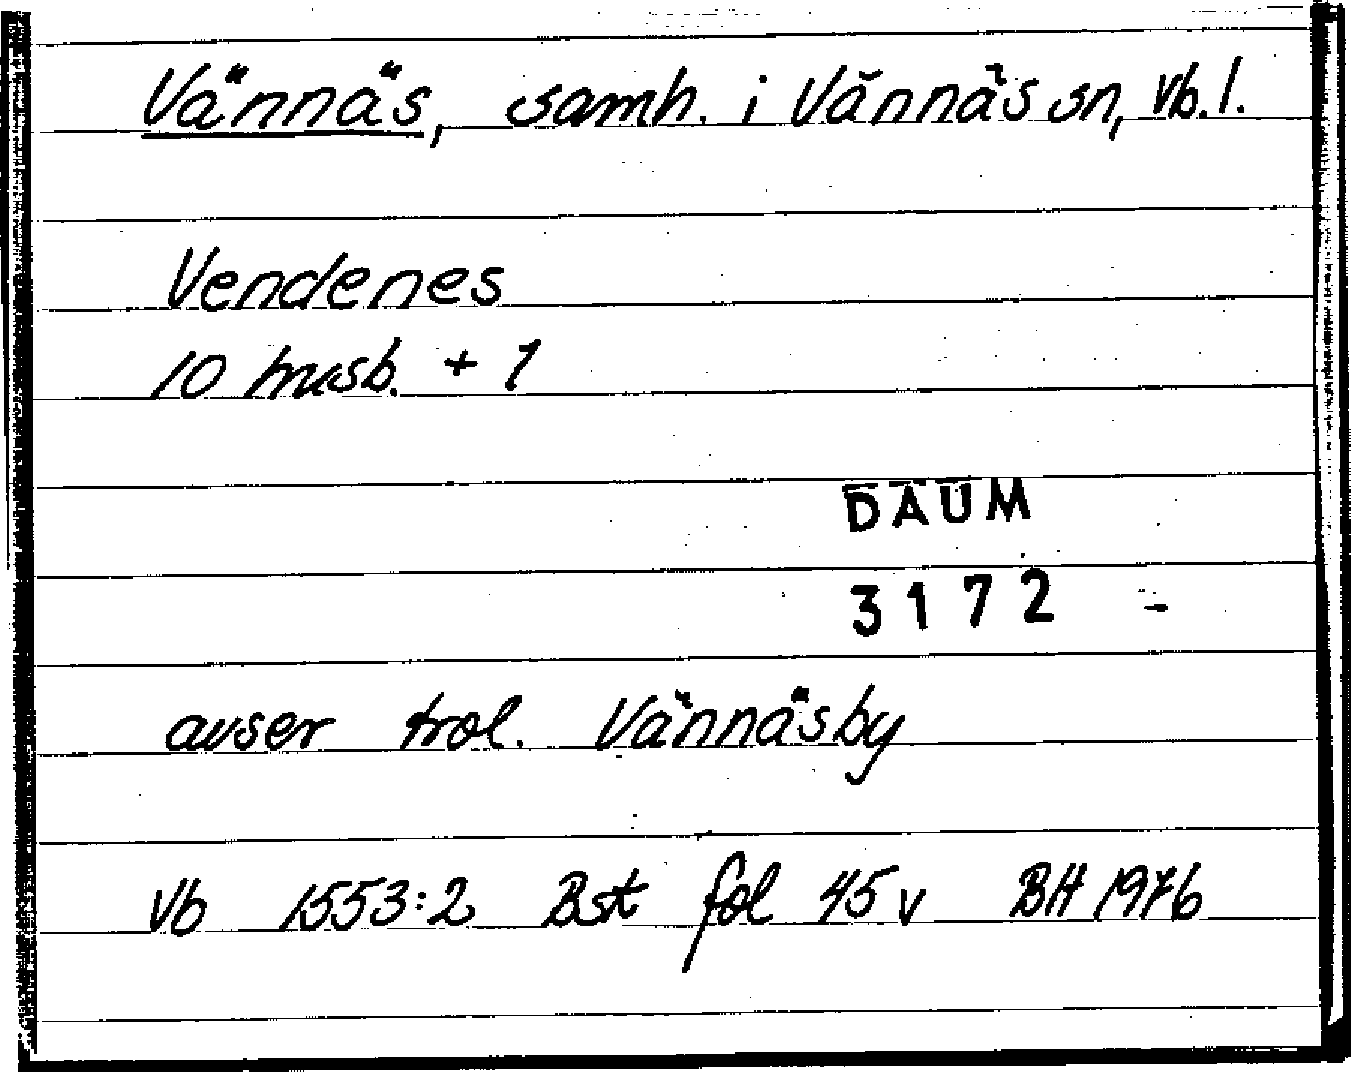 Vännäs, samh. i Vännäs sn, Vb. l.
Vendenes
10 husb. + 1
DAUM
3172 -
avser trol. Vännäsby
Vb 1553:2 Bst fol 45 v BH 1976